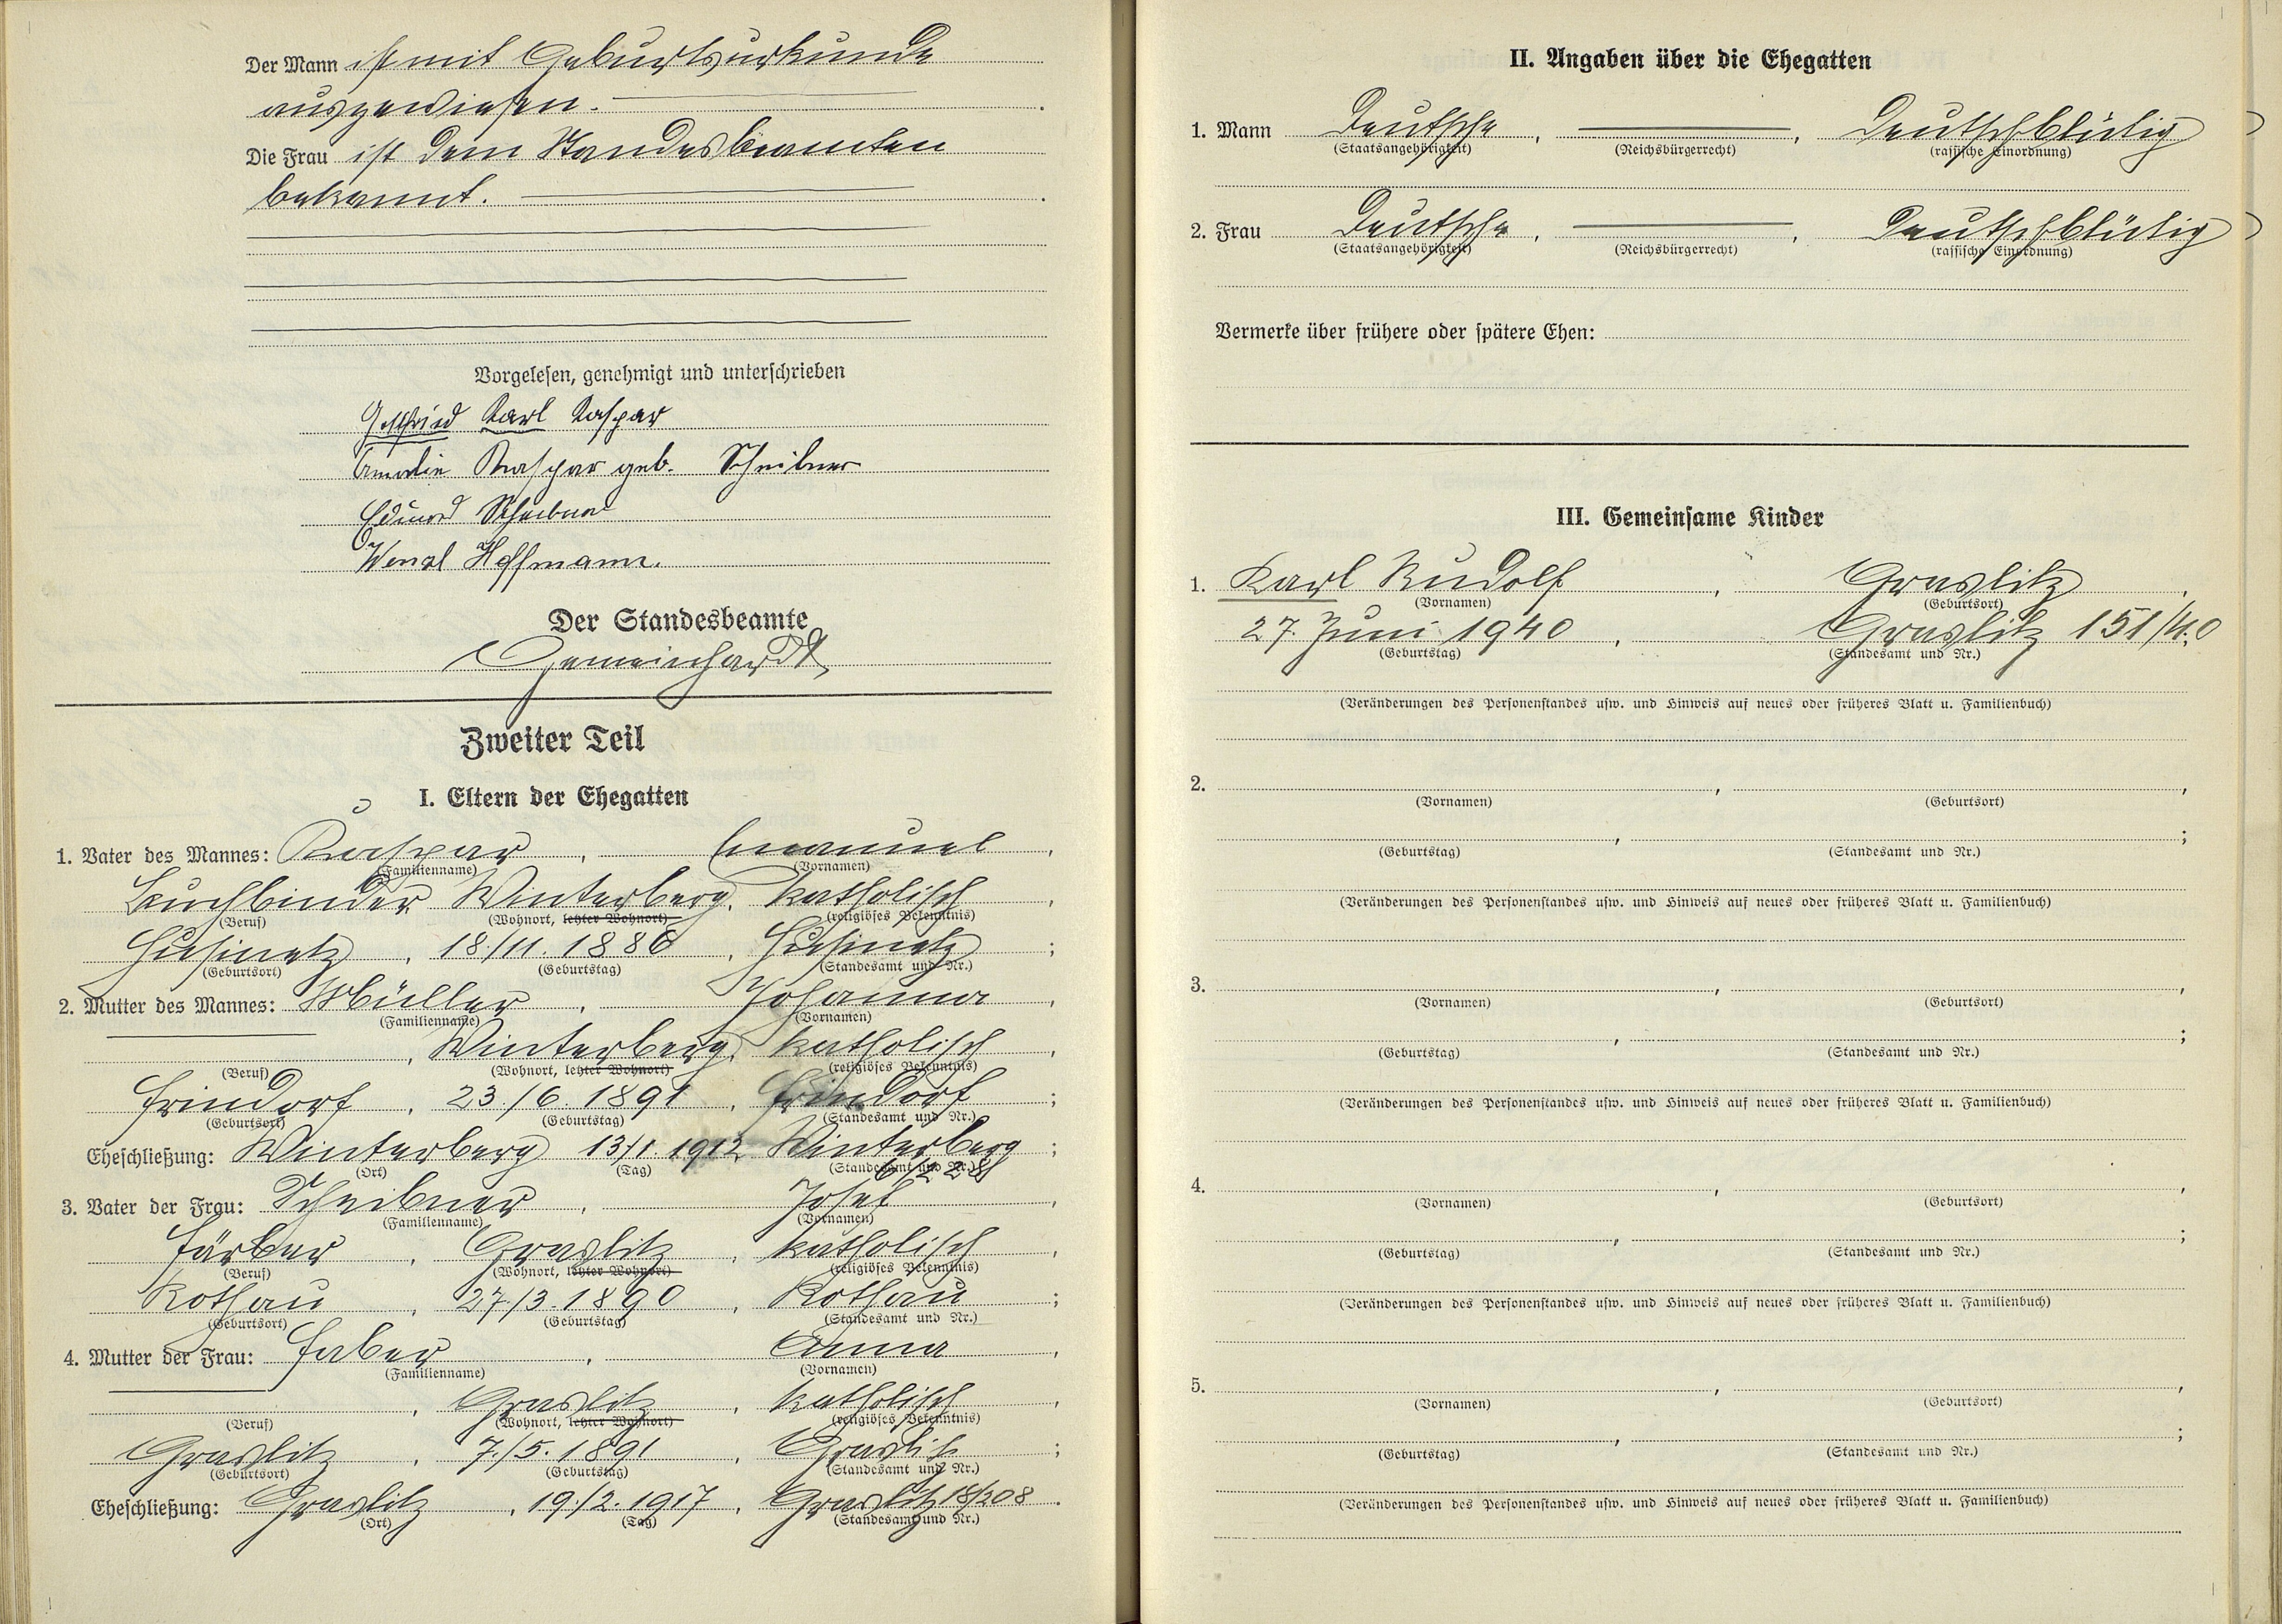 Der Mann ist mit Geburtsurkunde
ausgewiesen.
Die Frau ist dem Standesbeamten
bekannt.
Vorgelesen, genehmigt und unterschrieben
Gottfried Karl Kaspar
Amalie Kaspar geb. Scheibner
Eduard Scheibner
Wenzl Hoffmann.
Der Standesbeamte
Gemeinhardt
Zweiter Teil
I. Eltern der Ehegatten
1. Vater des Mannes: Kaspar, Emanuel,
(Familienname) (Vornamen)
Buchbinder, Winterberg, katholisch,
(Beruf) (Wohnort, letzter Wohnort) (religiöses Bekenntnis)
Husinetz, 18./11. 1886, Husinetz;
(Geburtsort) (Geburtstag) (Standesamt und Nr.)
2. Mutter des Mannes: Müller, Johanna,
(Familienname) (Vornamen)
, Winterberg, katholisch,
(Beruf) (Wohnort, letzter Wohnort) (religiöses Bekenntnis)
, 23./6. 1891, ;
(Geburtsort) (Geburtstag) (Standesamt und Nr.)
Eheschließung: Winterberg 13./1. 1912 Winterberg;
(Ort) (Tag) (Standesamt und Nr.)
3. Vater der Frau: Scheibner, Josef,
(Familienname) (Vornamen)
Färber, Graslitz, katholisch,
(Beruf) (Wohnort, letzter Wohnort) (religiöses Bekenntnis)
Rothau, 27./3. 1890, Rothau;
(Geburtsort) (Geburtstag) (Standesamt und Nr.)
4. Mutter der Frau: Faber, Anna,
(Familienname) (Vornamen)
, Graslitz, katholisch,
(Beruf) (Wohnort, letzter Wohnort) (religiöses Bekenntnis)
Graslitz, 7./5. 1891, Graslitz;
(Geburtsort) (Geburtstag) (Standesamt und Nr.)
Eheschließung: Graslitz, 19./2. 1917, Graslitz 18/208.
(Ort) (Tag) (Standesamt und Nr.)
II. Angaben über die Ehegatten
1. Mann Deutsche, , Deutschblütig
(Staatsangehörigkeit) (Reichsbürgerrecht) (rassische Einordnung)
2. Frau Deutsche, , Deutschblütig
(Staatsangehörigkeit) (Reichsbürgerrecht) (rassische Einordnung)
Vermerke über frühere oder spätere Ehen:
III. Gemeinsame Kinder
1. Karl Rudolf, Graslitz,
(Vornamen) (Geburtsort)
27. Juni 1940, Graslitz 151/40;
(Geburtstag) (Standesamt und Nr.)
(Veränderungen des Personenstandes usw. und Hinweis auf neues oder früheres Blatt u. Familienbuch)
2. , ,
(Vornamen) (Geburtsort)
, ;
(Geburtstag) (Standesamt und Nr.)
(Veränderungen des Personenstandes usw. und Hinweis auf neues oder früheres Blatt u. Familienbuch)
3. , ,
(Vornamen) (Geburtsort)
, ;
(Geburtstag) (Standesamt und Nr.)
(Veränderungen des Personenstandes usw. und Hinweis auf neues oder früheres Blatt u. Familienbuch)
4. , ,
(Vornamen) (Geburtsort)
, ;
(Geburtstag) (Standesamt und Nr.)
(Veränderungen des Personenstandes usw. und Hinweis auf neues oder früheres Blatt u. Familienbuch)
5. , ,
(Vornamen) (Geburtsort)
, ;
(Geburtstag) (Standesamt und Nr.)
(Veränderungen des Personenstandes usw. und Hinweis auf neues oder früheres Blatt u. Familienbuch)